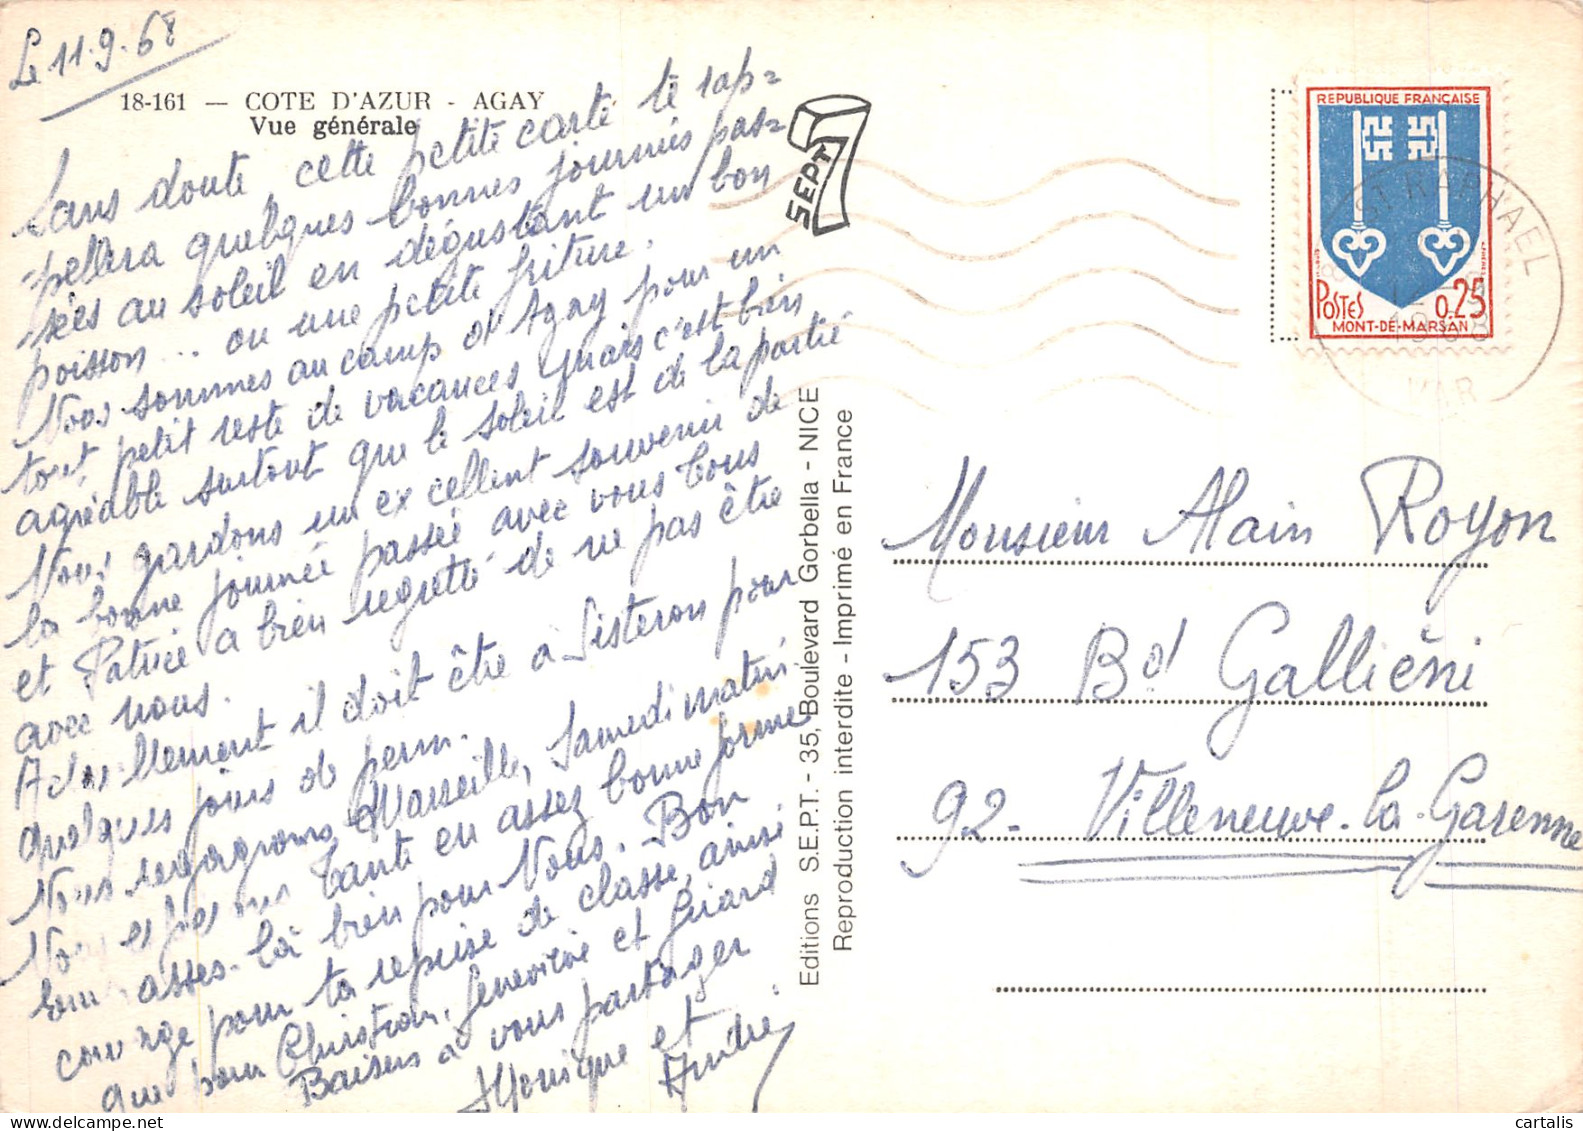 Le 11.9.68
18-161 — COTE D'AZUR - AGAY
Vue générale
Sans doute, cette petite carte te rap=
=pellera quelques bonnes journées pas=
sées au soleil en dégustant un bon
poisson... ou une petite friture.
Nous sommes au camp d'Agay pour un
tout petit reste de vacances mais c'est bien
agréable surtout que le soleil est de la partie
Nous gardons un excellent souvenir de
la bonne journée passée avec vous tous
et Patrice a bien regretté de ne pas être
avec nous.
Actuellement il doit être à Sisteron pour
quelques jours de perm.
Nous regagnons Marseille, Samedi matin
Nous espérons tante en assez bonne forme
tout bien pour Vous. Bon
courage pour ta reprise de classe, ainsi
que pour Christian, Geneviève et Gérard
Baisers à vous partager
Monique et
André.
SEPT 7
Editions S.E.P.T. - 35, Boulevard Gorbella - NICE
Reproduction interdite - Imprimé en France
REPUBLIQUE FRANÇAISE
POSTES
0.25
MONT-DE-MARSAN
ST RAPHAEL
12-9
1968
VAR
Monsieur Alain Royon
153 Bd Galliéni
92- Villeneuve-la-Garenne
cartalis